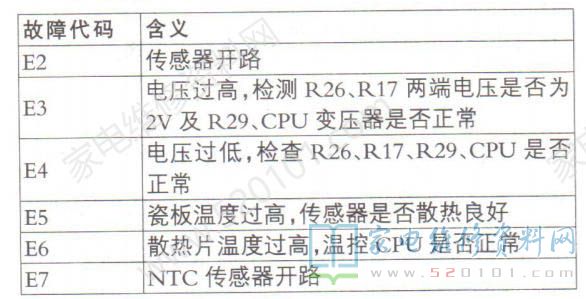 故障代码 含义
E2 传感器开路
E3 电压过高,检测 R26、R17 两端电压是否为
2V 及 R29、CPU 变压器是否正常
E4 电压过低,检查 R26、R17、R29、CPU 是否
正常
E5 瓷板温度过高,传感器是否散热良好
E6 散热片温度过高,温控 CPU 是否正常
E7 NTC 传感器开路
家电维修资料网
www.520101.com